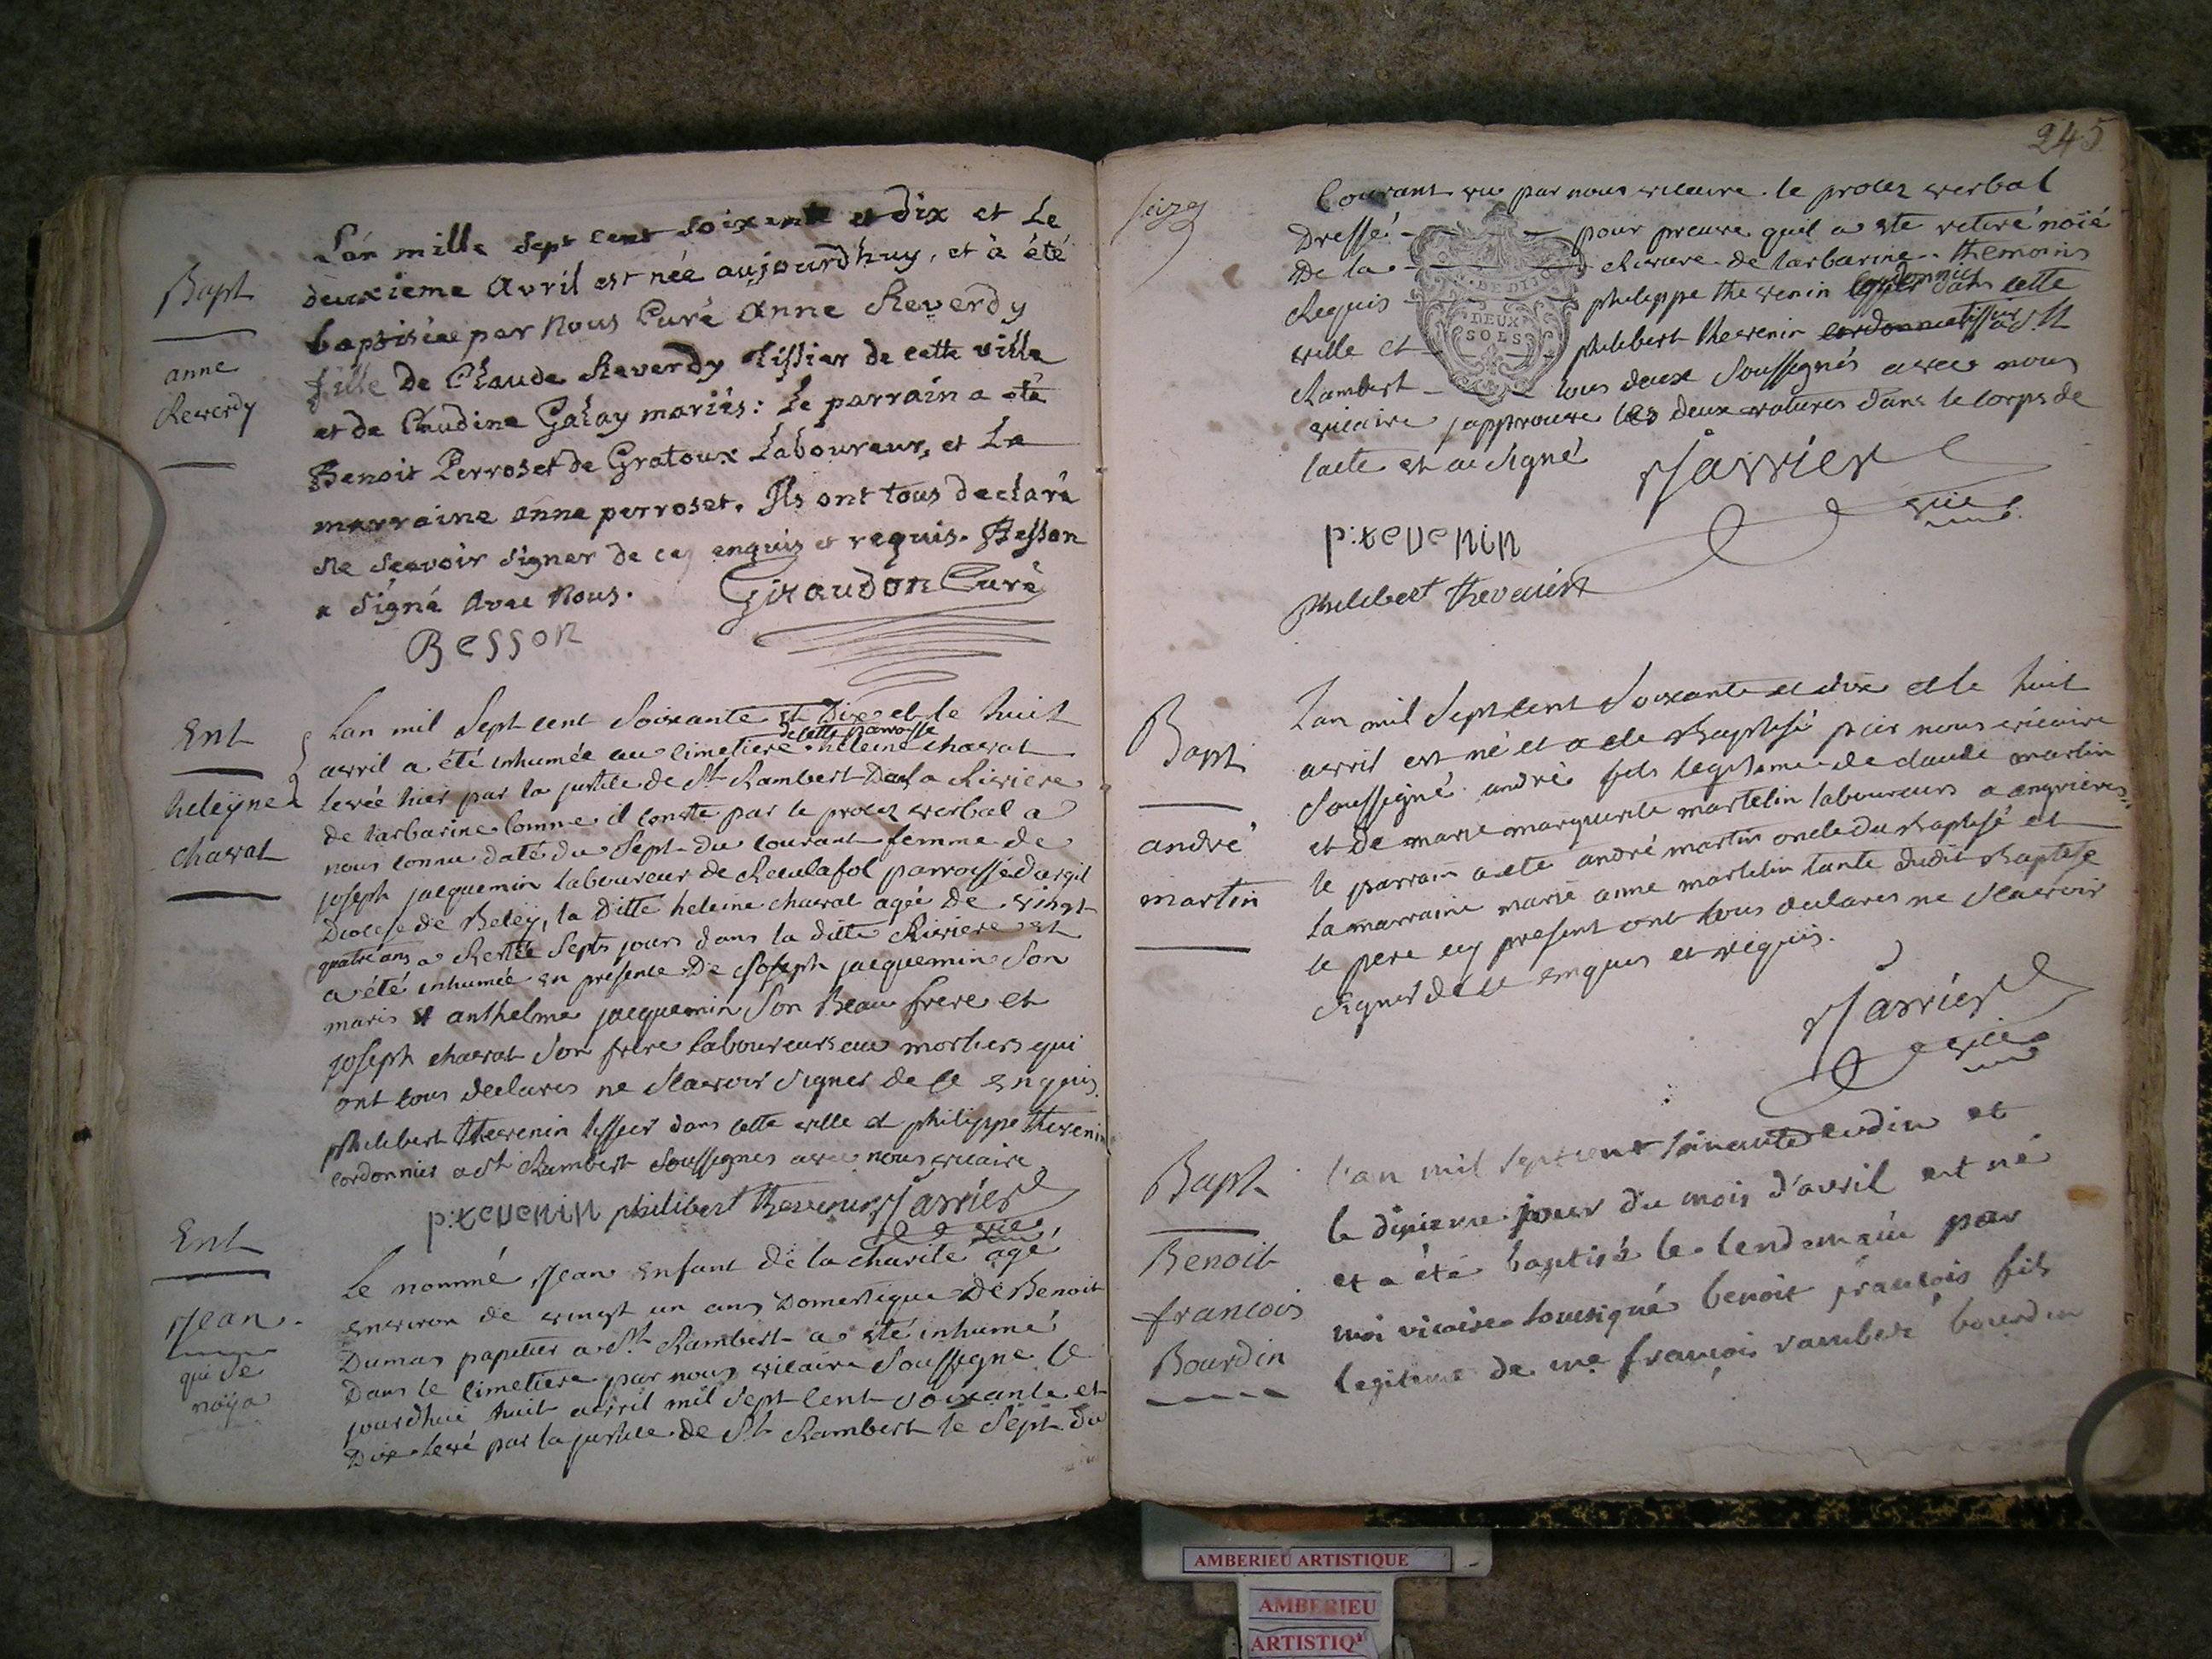 Bapt
anne
Reverdy
L'an mille sept cent soixente et dix et le
deuxieme Avril est née aujourd'huy, et à été
baptisée par Nous Curé Anne Reverdy
fille De Claude Reverdy Tissier de cette ville
et de Claudine Galay mariés: Le parrain a été
Benoit Perroset de Gratoux Laboureur, et La
marraine anne perroset. Ils ont tous declaré
Ne sçavoir signer de ce enquis et requis. Besson
a signé Avec Nous. Giraudon Curé
Besson
Ent
heleyne
chavat
Lan mil Sept cent Soixante et Dix et le huit
avril a été inhumée au cimetiere de cette parroisse heleine chavat
levée hier par la justice de St Rambert De la Riviere
de larbarine comme il conste par le procez verbal a
nous connu daté du Sept du courant femme de
joseph jacquemin laboureur de Reculafol parroisse dargil
Diocese de Beley, la Ditte heleine chavat agée De vingt
quatre ans a Restée Sept jours dans la ditte Riviere et
a été inhumée en présence De joseph jacquemin Son
maris et anthelme jacquemin Son Beau frere et
joseph chavat Son frere laboureurs au mortiers qui
ont tous declarés ne Scavoir signer de ce enquis
philibert thevenin tissier dans cette ville et philippe thevenin
cordonnier a St Rambert Soussignes avec nous vicaire
p:tevenin philibert thevenin Jarrier
vic
Ent
Jean
qui se
noya
Le nommé Jean enfant de la charité agé
environ de vingt un ans Domestique De Benoit
Dumas papetier a St Rambert a été inhumé
Dans le cimetiere par nous vicaire Soussigne ce
jourdhui huit avril mil Sept cent soixante et
Dix levé par la justice de St Rambert le Sept du
245
seize
Courant vu par nous vicaire le procez verbal
Dressé pour preuve quil a ete retiré noïé
De la Riviere de larbarine themoins
Requis philippe thevenin cordonnier dans cette
DEUX
SOLS
ville et philibert thevenin tissier a St
Rambert tous deux Soussignés avec nous
vicaire japprouve les deux ratures dans le corps de
lacte et ai signé Jarrier
vic
p:tevenin
philibert thevenin
Bapt
andré
martin
Lan mil Sept cent Soixante et dix et le huit
avril est né et a ete Baptisé par nous vicaire
Soussigné andré fils legitime de claude martin
et de marie marguerite martelin laboureurs a angrieres
le parrain a ete andré martin oncle du Baptisé et
la marraine marie anne martelin tante dudit Baptise
le pere icy present ont tous declares ne Scavoir
signer de ce enquis et requis.
Jarrier
vic
Bapt
Benoit
francois
Bourdin
l'an mil sept cent soixante et dix et
le dixieme jour du mois d'avril est né
et a été baptisé le lendemain par
moi vicaire soussigné benoit françois fils
legitime de me françois rambert bourdin
AMBERIEU ARTISTIQUE
AMBERIEU
ARTISTIQ